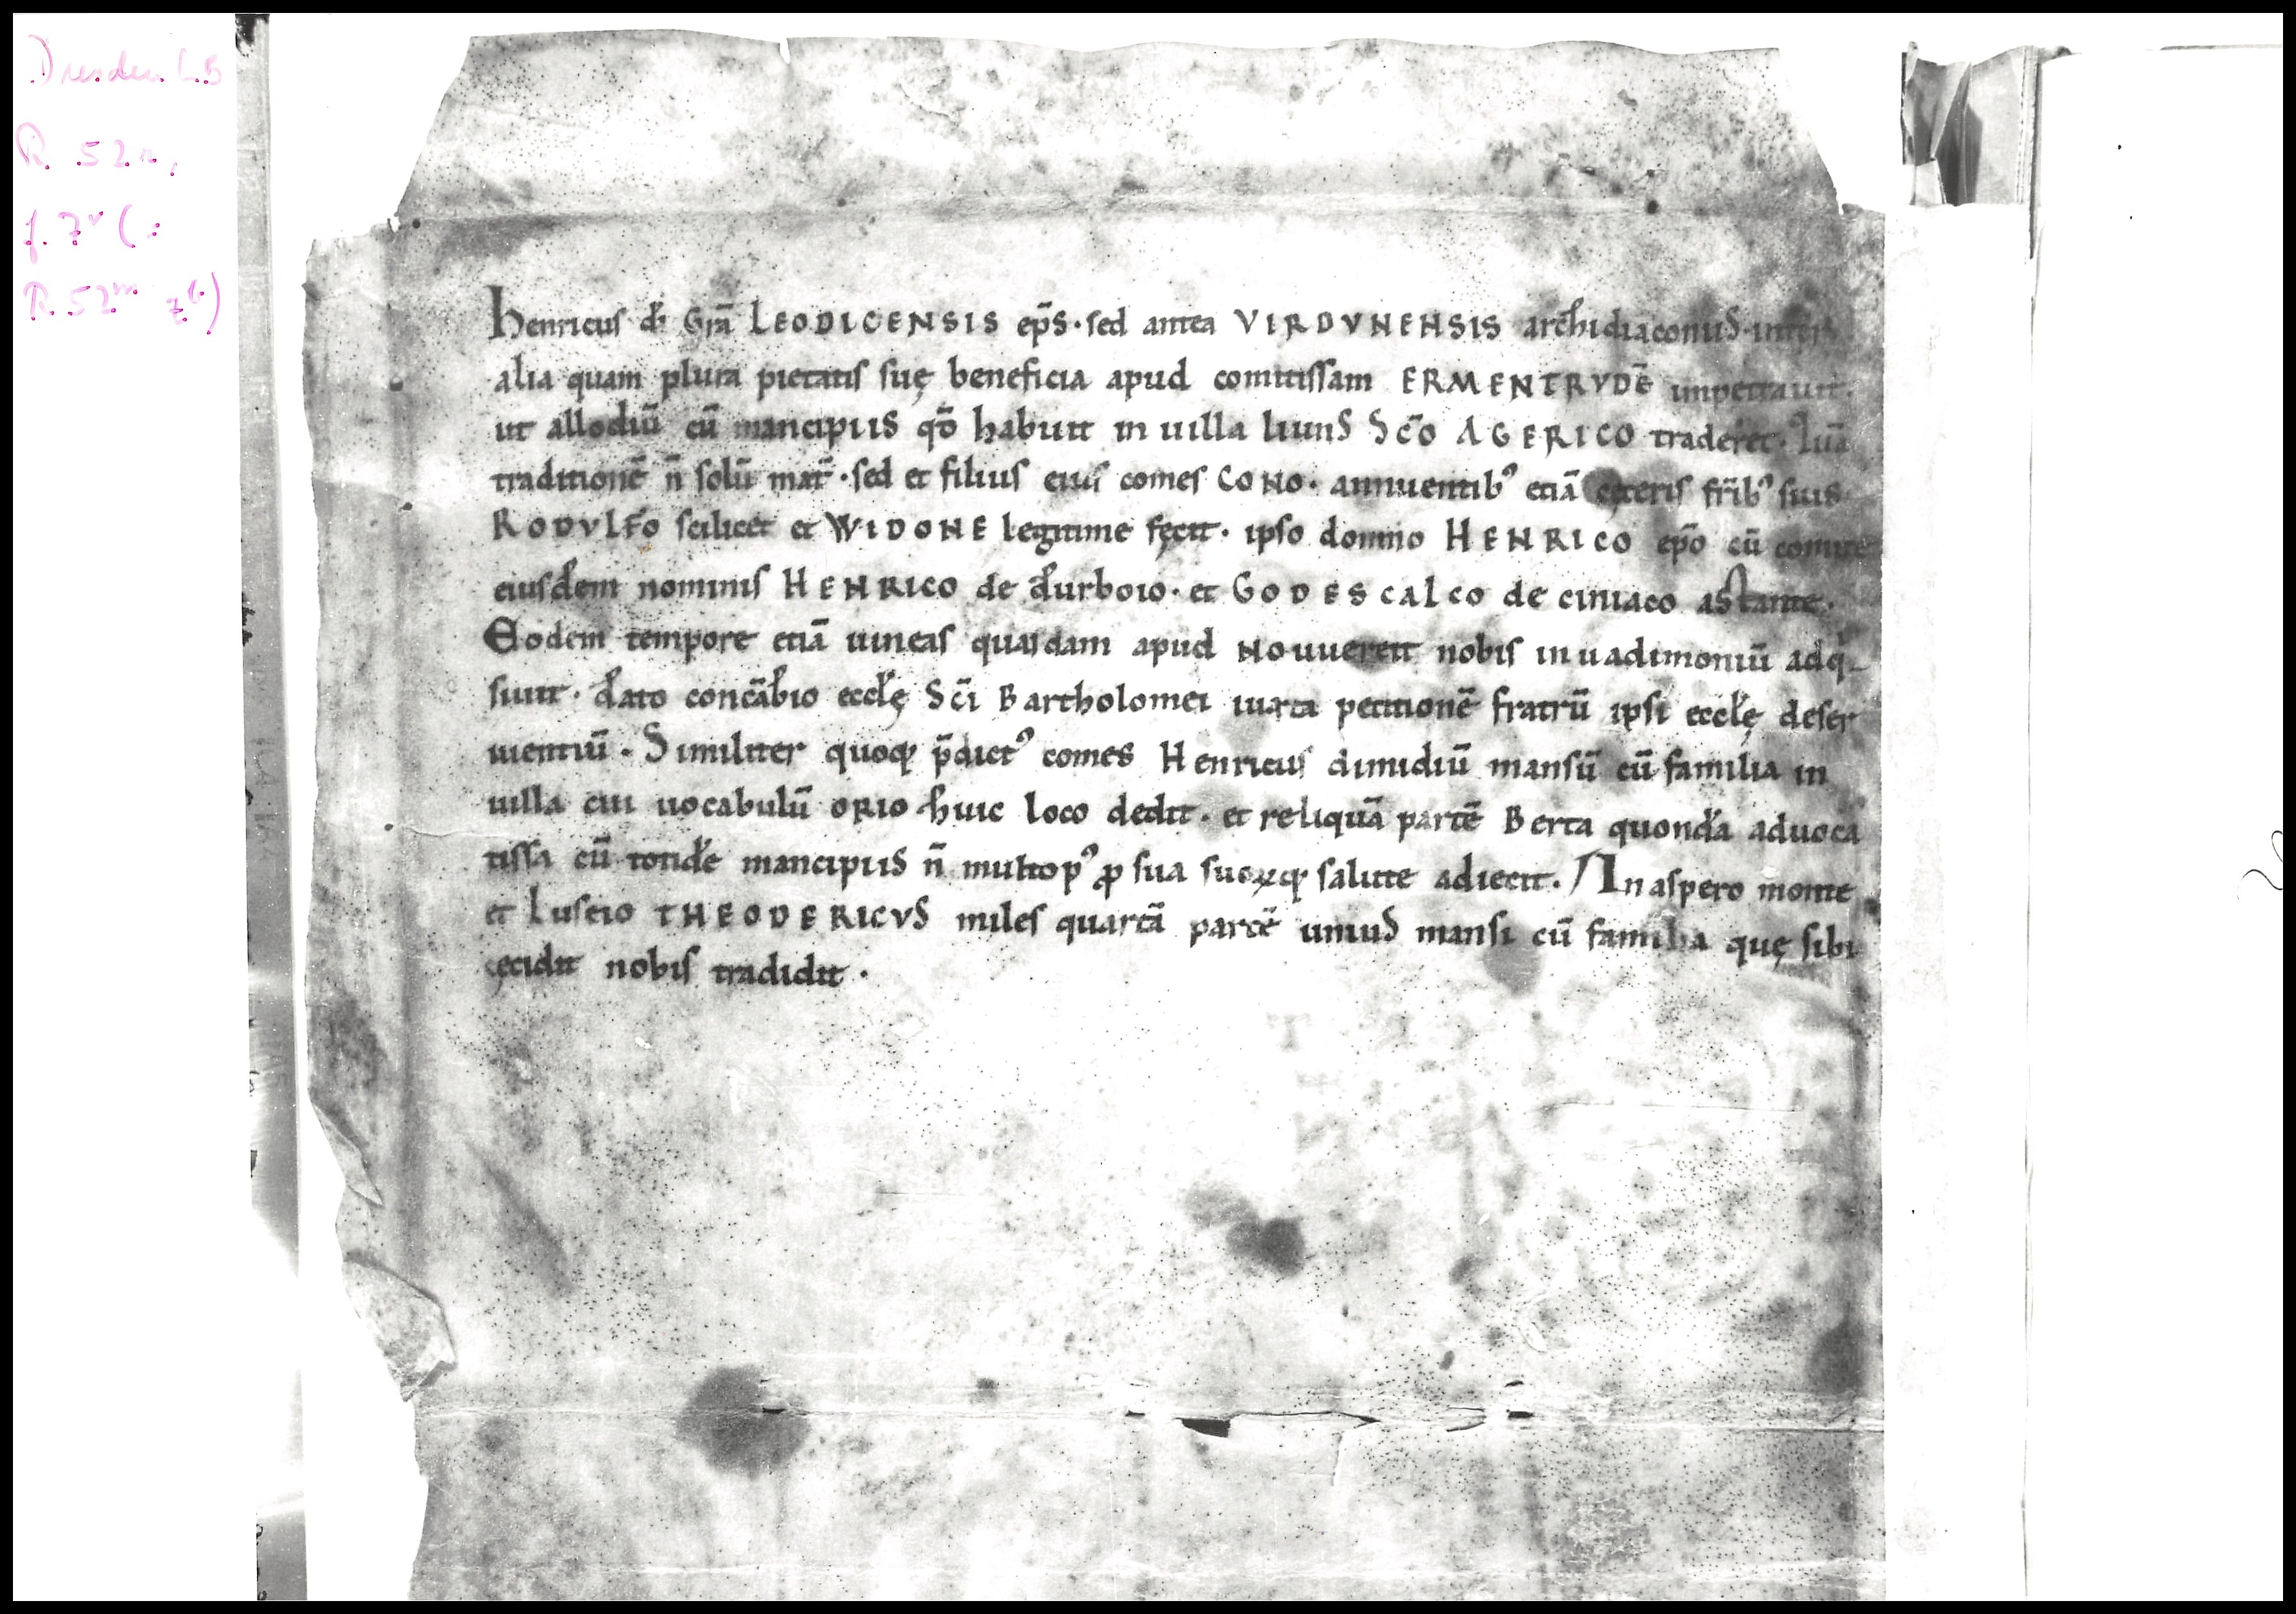 Dresden LB
R 52n,
f. 7v (:
R. 52m zb)
Henricus dī Grā LEODICENSIS ep̄s · sed antea VIRDVNENSIS archidiaconuS · inter
alia quam plura pietatis suę beneficia apud comitissam ERMENTRVDĒ impetrauit ·
ut allodiū cū mancipiiS qđ habuit in uilla liunS Sc̄o AGERICO traderet · Quā
traditionē n̄ solū mat̄ · sed et filius eius comes CONO · annuentib⁹ etiā cęteris fr̄ib⁹ suis
RODVLFO scilicet et WIDONE legitime fęcit · ipso domno HENRICO ep̄o cū comite
eiusdem nominis HENRICO de durboio · et GODESCALCO de ciniaco aStante ·
Eodem tempore etiā uineas quasdam apud Nouuereit nobis in uadimoniū adq̇-
siuit · dato concābio eccłę Sc̄i Bartholomei iuxta petitionē fratrū ipsi eccłę deser
uientiū · Similiter quoq; p̄dict⁹ comes Henricus dimidiū mansū cū familia in
uilla cui uocabulū ORIO huic loco dedit · et reliquā partē Berta quondā aduoca
tissa cū totidē mancipiiS n̄ multo p⁹ ꝓ sua suoꝝq; salute adiecit · In aspero monte
et Luscio THEODERICVS miles quartā partē uniuS mansi cū familia quę sibi
cęcidit nobis tradidit ·